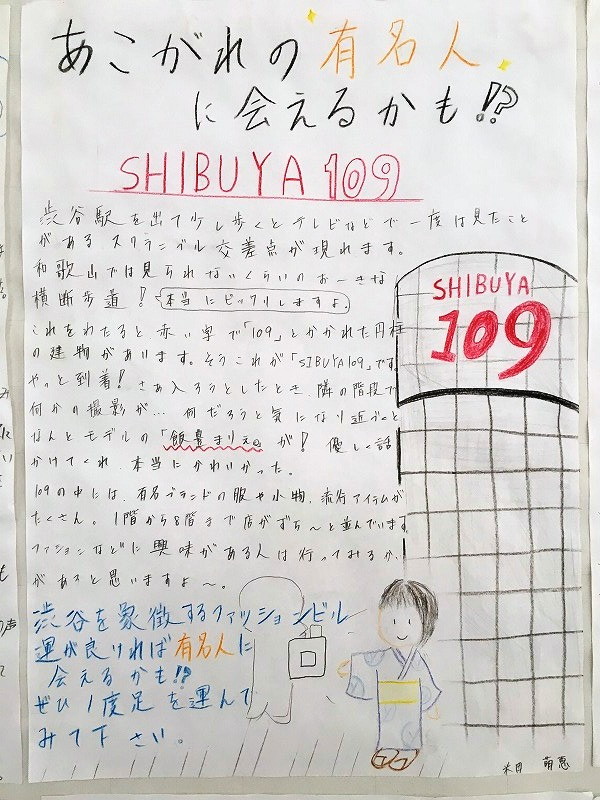 あこがれの有名人
に会えるかも!?
SHIBUYA 109
渋谷駅を出て少し歩くとテレビなどで一度は見たこと
があるスクランブル交差点が現れます。
和歌山では見られないくらいのおーきな
横断歩道! 本当にビックリしますよ。
これをわたると、赤い字で「109」とかかれた円柱
の建物があります。そうこれが「SIBUYA109」です。
やっと到着!さあ入ろうとしたとき、隣の階段で
何かの撮影が… 何だろうと気になり近づくと
なんとモデルの「飯豊まりえ」が! 優しく話
かけてくれ、本当にかわいかった。
109の中には、有名ブランドの服や小物、流行アイテムが
たくさん。1階から8階まで店がずら〜と並んでいます。
ファションなどに興味がある人は行ってみるか
があると思いますよ〜。
SHIBUYA
109
渋谷を象徴するファッションビル
運が良ければ有名人に
会えるかも!?
ぜひ1度足を運んで
みて下さい。
萌恵